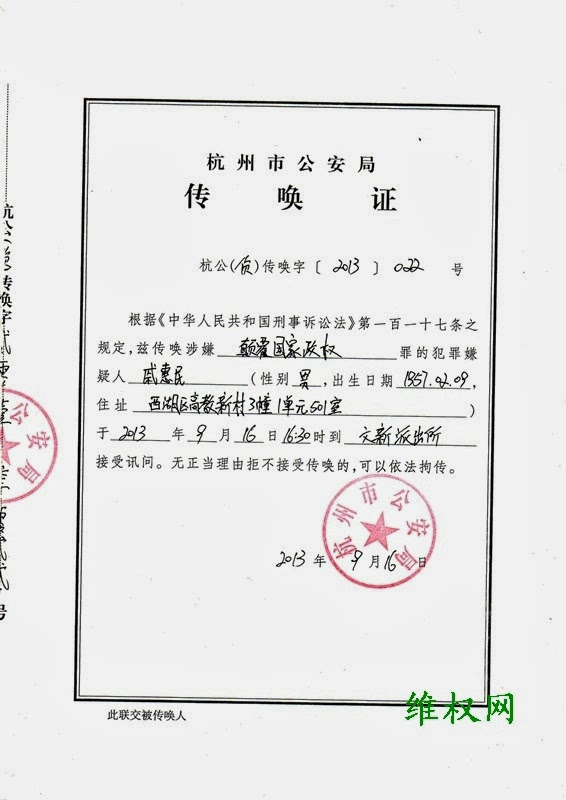 杭州市公安局
传唤证
杭公(侦)传唤字〔2013〕022号
根据《中华人民共和国刑事诉讼法》第一百一十七条之
规定，兹传唤涉嫌 颠覆国家政权 罪的犯罪嫌
疑人 戚惠民 (性别 男 ，出生日期 1957.02.09，
住址 西湖区高教新村3幢1单元501室 )
于 2013 年 9 月 16 日 16:30时到 文新派出所
接受讯问。无正当理由拒不接受传唤的，可以依法拘传。
杭州市公安局
2013年9月16日
此联交被传唤人
维权网
杭公
传唤字
公安局
号